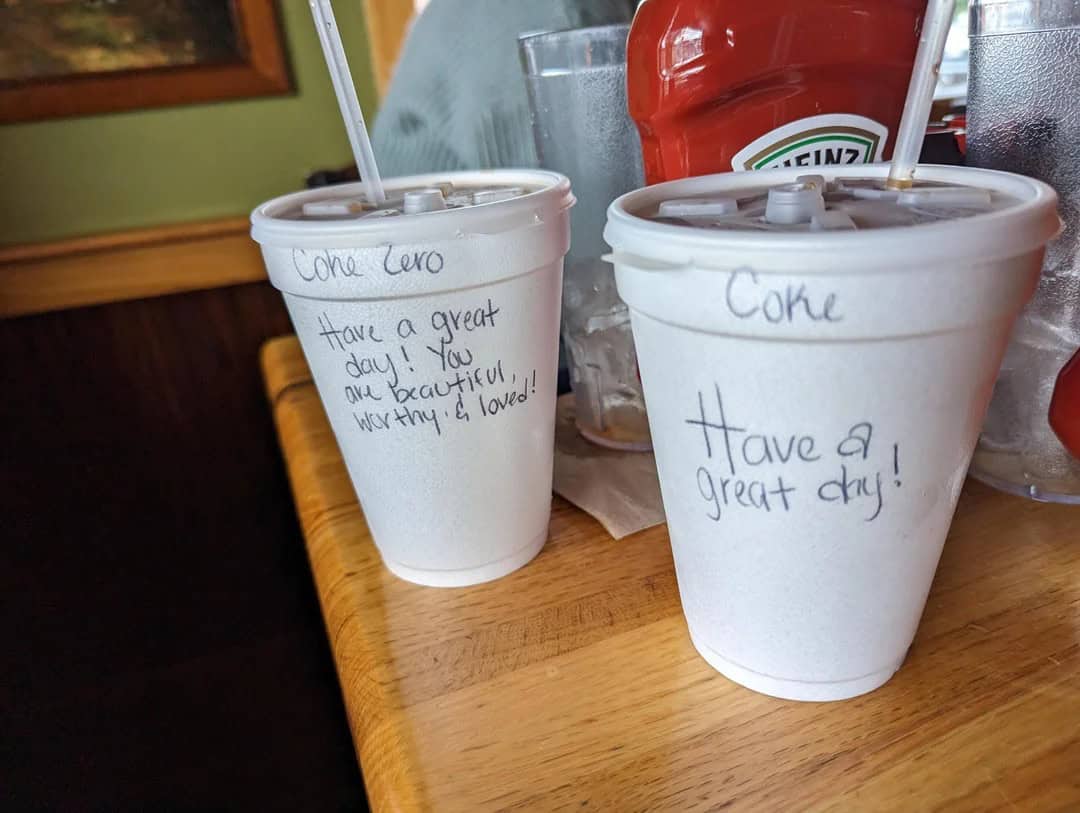 Coke Zero
Have a great
day! You
are beautiful,
worthy & loved!
Coke
Have a
great day!
HEINZ